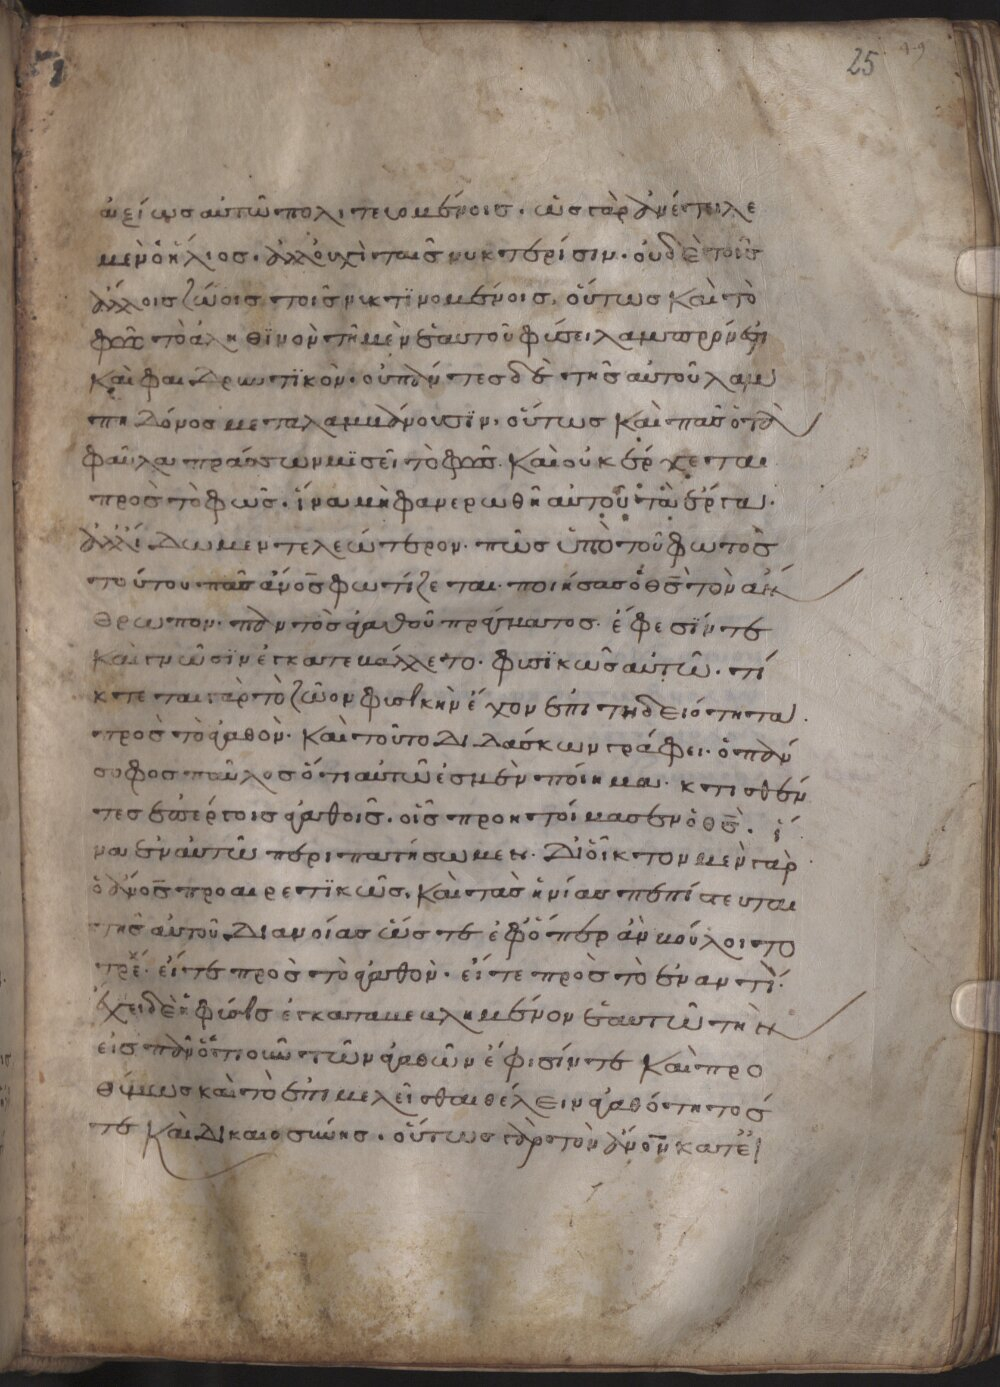 25
ἀξίως αὐτῶ πολιτευομένοις. ὡς γὰρ ἀνέτειλε
μὲν ὁ ἥλιος. ἀλλ' οὐχὶ ταῖς νυκτερίσιν. οὐδὲ τοῖς
ἄλλοις ζώοις τοῖς νυκτϊνομένοις. οὕτως καὶ τὸ
φῶς τὸ ἀληθϊνὸν τῆ μὲν ἑαυτοῦ φύσει λαμπρόν ἐστι
καὶ φαιδρωτϊκὸν. οὐ πάντες δὲ τῆς αὐτοῦ λαμ
πηδόνος μεταλαμβάνουσϊν. οὕτως καὶ πᾶς ὁ τὰ
φαῦλα πράσσων μϊσεῖ τὸ φῶς. καὶ οὐκ ἔρχεται
πρὸς τὸ φῶς. ἵνα μὴ φανερωθῆ αὐτοῦ τὰ ἔργα.
ἀλλ' ἴδωμεν τελεώτερον. πῶς ὑπὸ τοῦ φωτὸς
τούτου πᾶς ἄνος φωτίζεται. ποιήσας ὁ θς τὸν ἄν
θρωπον. παντὸς ἀγαθοῦ πράγματος. ἔφεσίν τε
καὶ γνῶσϊν ἐγκατεβάλλετο. φυσϊκῶς αὐτῶ. τί
κτεται γὰρ τὸ ζῶον φυσικὴν ἔχον ἐπιτηδειότητα
πρὸς τὸ ἀγαθὸν. καὶ τοῦτο διδάσκων γράφει. ὁ πάν
σοφος παῦλος ὅτι αὐτῶ ἐσμὲν ποίημα. κτισθέν
τες ἐπ' ἔργοις ἀγαθοῖς. οἷς προητοίμασεν ὁ θς. ἵ
να ἐν αὐτῶ περιπατήσωμεν. διοίκτον μὲν γὰρ
ὁ ἄνος προαιρετϊκῶς. καὶ τὰς ἡνίας πεπίστευται
τῆς αὐτοῦ διανοίας ὥστε ἐφ' ὅπερ ἂν βούλοιτο
τρέ. εἴτε πρὸς τὸ ἀγαθὸν. εἴτε πρὸς τὸ ἐναντί.
ἔχει δὲ ἡ φύσις ἐγκαταβεβλημένον ἑαυτῶ τὴν
εἰς πᾶν ὁτιοῦν τῶν ἀγαθῶν ἔφισίν τε καὶ προ
θύμως καὶ τὸ ἐπιμελεῖσθαι θέλειν ἀγαθότητός
τε καὶ δικαιοσύνης. οὕτως γὰρ τὸν ἄνον κατε